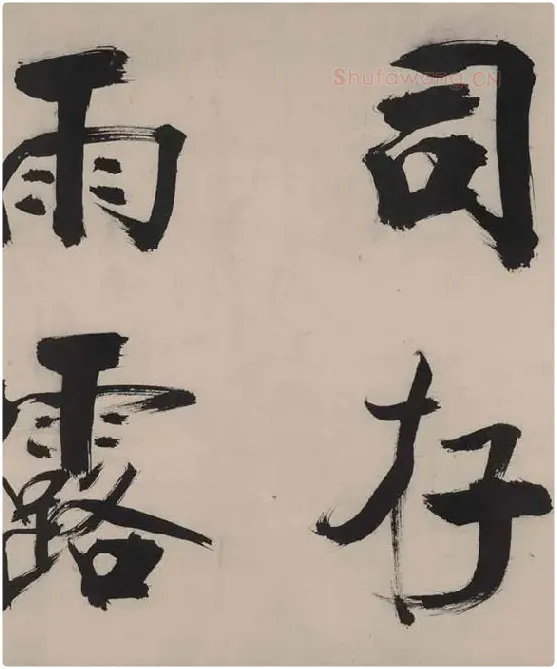 司存
雨露
Shufawang.CN